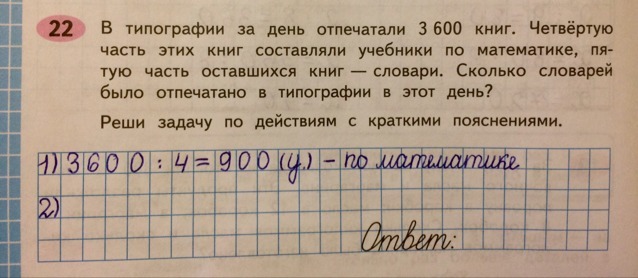 22 В типографии за день отпечатали 3 600 книг. Четвёртую
часть этих книг составляли учебники по математике, пя-
тую часть оставшихся книг — словари. Сколько словарей
было отпечатано в типографии в этот день?
Реши задачу по действиям с краткими пояснениями.
1) 3600 : 4 = 900 (у.) – по математике
2)
Ответ: